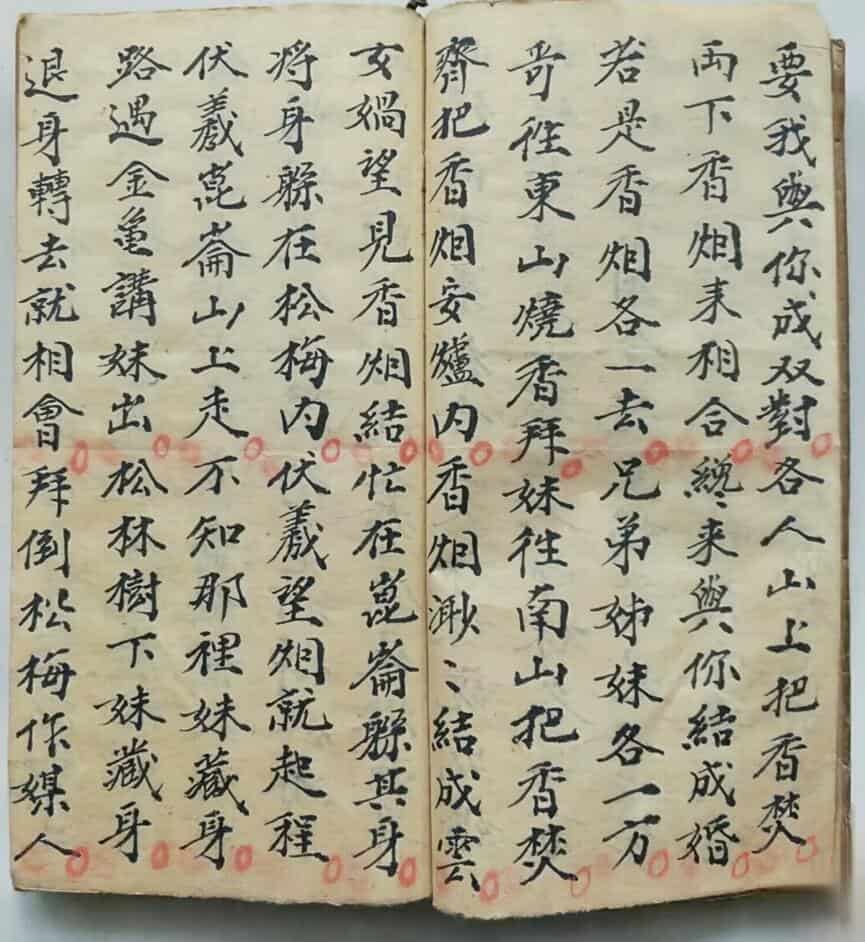 要我與你成双對各人山上把香焚
両下香烟来相合纔来與你結成婚
若是香烟各一去兄弟姊妹各一方
哥徃東山燒香拜妹徃南山把香焚
齊把香烟安爐内香烟渺〻結成雲
女媧望見香烟結忙在崑崙躲其身
将身躲在松梅内伏羲望烟就起程
伏羲崑崙山上走不知那裡妹藏身
路遇金亀講妹出松林樹下妹藏身
退身轉去就相會拜倒松梅作媒人